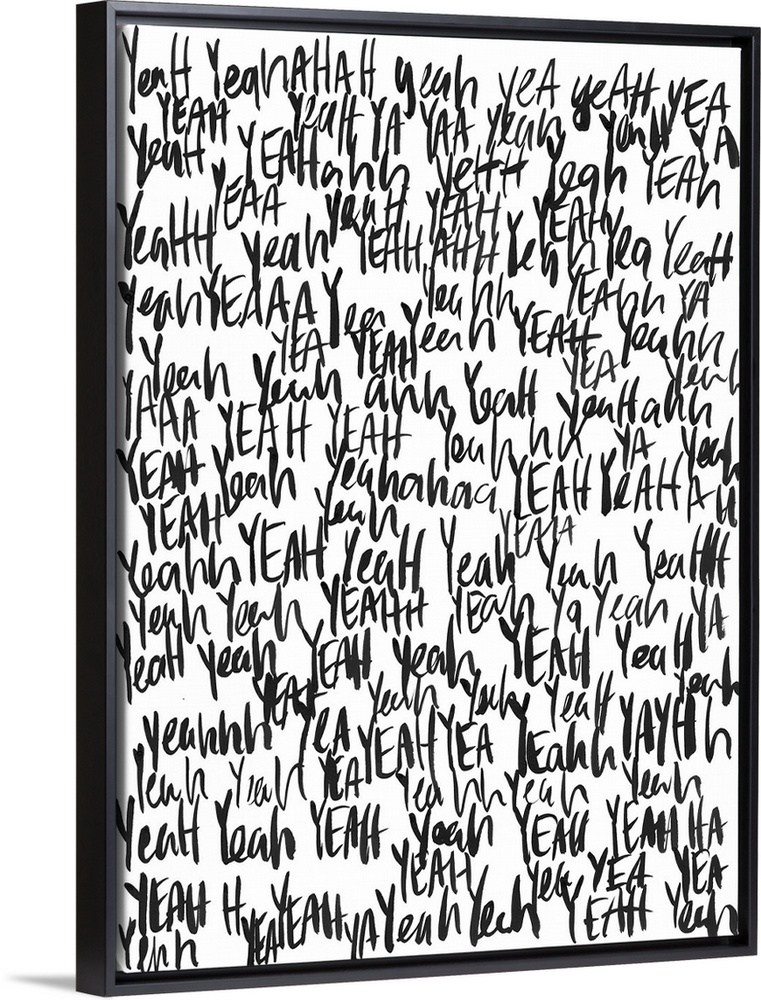 YeaH YeahAHAH yeah YEA yEAH YEA
YEAH YeaH YA YAA Yeah YeaH YA
YeaH YEAHahh YeHH Yeah YEAh
YEAA YeaH YEAH YEAH
YeaHH Yeah YEAH AHH Yeah Yea YeaH
YeahYEAAA Yea Yeahh YEAhh YA
YEA YEAH Yeah YEAH Yeahh
Yeah Yeah ahh YeaH YEA Yeah
YAAA YEAH YEAH Yeahhh YeaHahh YA
YEAH Yeah Yeahahaa YEAH YeAH AH Yeah
YEAH Yeah YEAAA
Yeahh YEAH YeaH Yeah Yeah YeaHH
Yeah Yeah YEAHH YEah Ya Yeah YA
YeaH Yeah YEAH Yeah YEAH YeaH
YEAH Yeah Yeah YeaH Yeah
Yeahhh YeA YEAH YEA Yeahh YAYH h
Yeah Yeah YEA Yeahh Yeah Yeah
YeaH Yeah YEAH Yeah YEAH YEAH HA
YEAH Yea YEA YEA
YEAH H YEAH YeahYeah YEAH Yeah
Yehh YEA YA